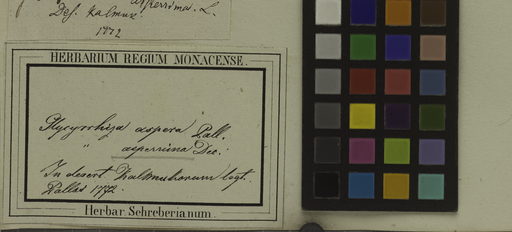 asperrima. L.
Des. Kalmuc.
1772
HERBARIUM REGIUM MONACENSE.
Glycyrrhiza aspera Pall.
" asperrima Dec.
In desert Kalmukorum legt.
Pallas 1772.
Herbar. Schreberianum.